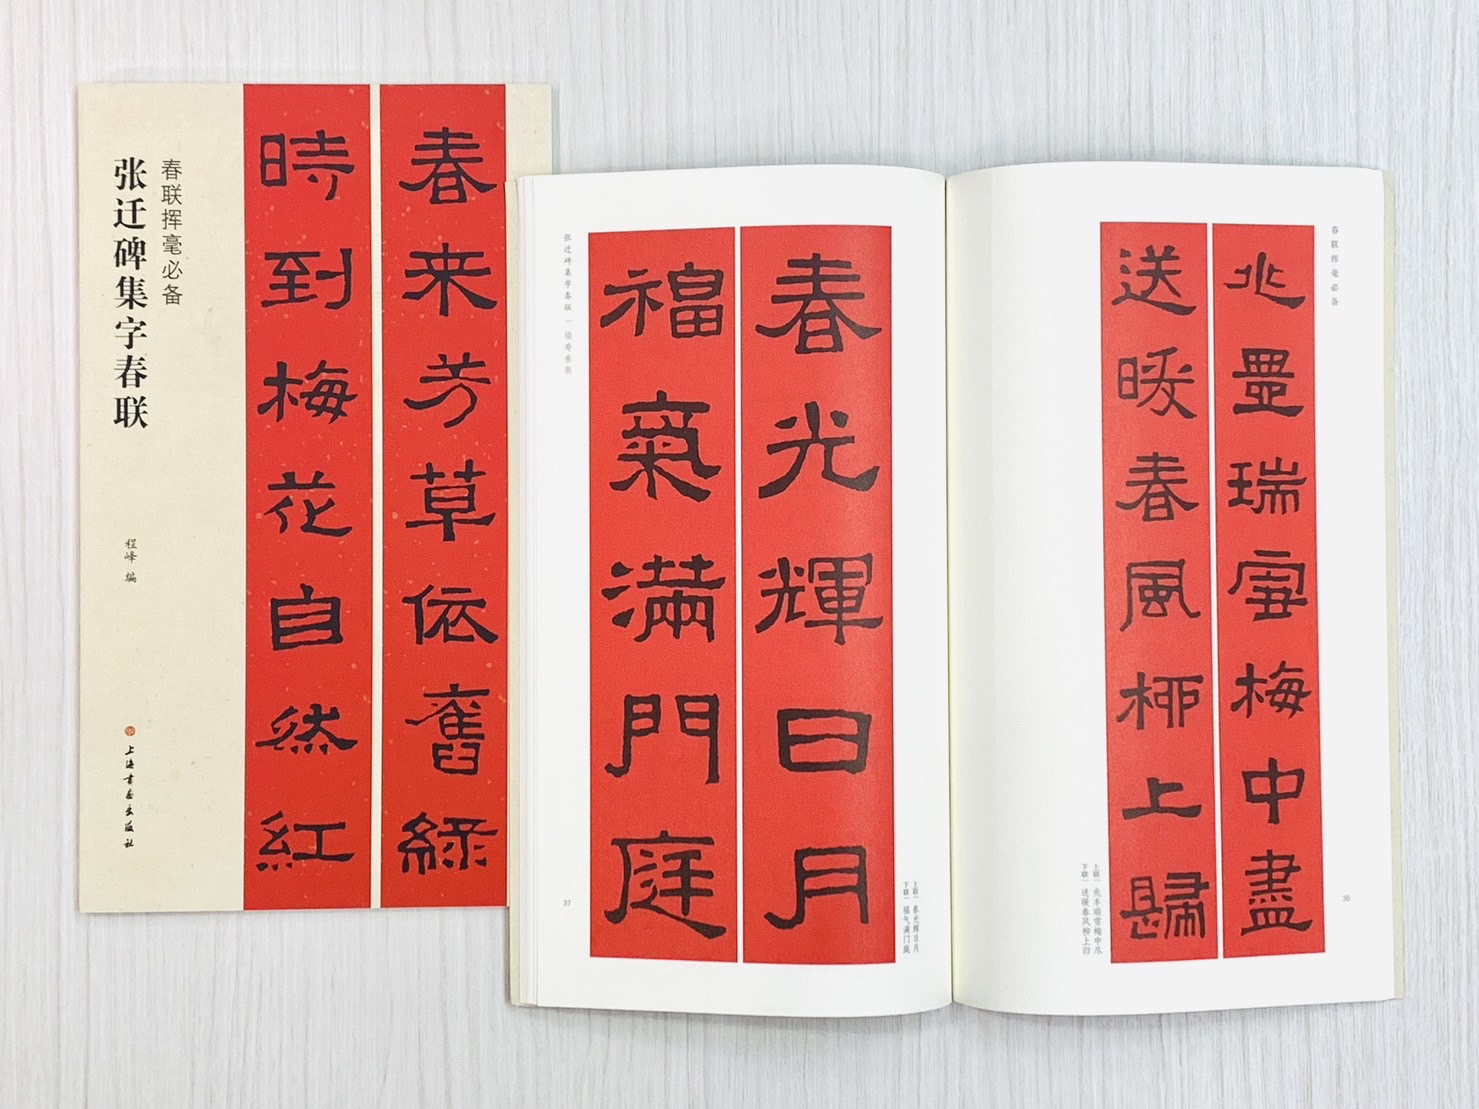 春来芳草依舊綠
時到梅花自然紅
春联挥毫必备
张迁碑集字春联
程峰 编
上海書畫出版社
春联挥毫必备
兆豐瑞雪梅中盡
送暖春風柳上歸
上联｜兆丰瑞雪梅中尽
下联｜送暖春风柳上归
春光輝日月
福氣滿門庭
上联｜春光辉日月
下联｜福气满门庭
张迁碑集字春联｜福寿春联
37